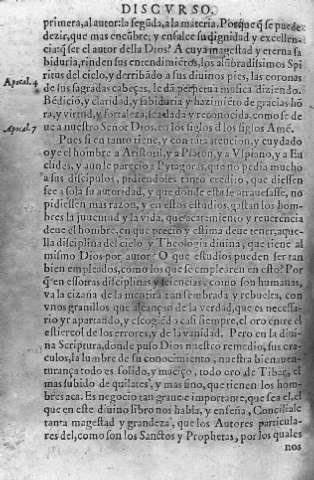 DISCVRSO.
primera, al autor: la segũda, a la materia. Porque q̃ se puede
dezir, que mas encũbre, y ensalce su dignidad y excellen-
cia: q̃ ser el autor della Dios? A cuya magestad y eterna sa
biduria, rinden sus entendimiẽtos, los alũbradissimos Spi
ritus del cielo, y derribãdo a sus diuinos pies, las coronas
Apocal. 4
de sus sagradas cabeças, le dã perpetua musica diziendo.
Bẽdiciõ, y claridad, y sabiduria y hazimiẽto de gracias hõ
ra, y virtud, y fortaleza, sea dada y reconocida, como se de
Apocal. 7
ue a nuestro Señor Dios, en los siglos d los siglos Amẽ.
Pues si en tanto tiene, y con tãta atencion, y cuydado
oye el hombre a Aristotil, y a Platõ, y a Vlpiano, y a Eu
clides, y aun le parecio a Pytagoras, que no pedia mucho
a sus discipulos, pidiendoles tãto credito, que diessen
fee a sola su autoridad, y que donde ella se atrauessasse, no
pidiessen mas razon, y en estos estudios, gastan los hom-
bres la juuentud y la vida, que acatamiento y reuerencia
deue el hombre, en que precio y estima deue tener, aque-
lla disciplina del cielo y Theologia diuina, que tiene al
mismo Dios por autor? O que estudios pueden ser tan
bien empleados, como los que se emplearen en esto? Por
q̃ en essotras disciplinas y sciencias, como son humanas,
va la cizaña de la mentira tan sembrada y rebuelta, con
vnos granillos que alcançan de la verdad, que es necessa-
rio yr apartando, y escogẽdo casi siempre, el oro entre el
estiercol de los errores, y de la vanidad. Pero en la diui
na Scriptura, donde puso Dios nuestro remedio, sus ora-
culos, la lumbre de su conocimiento, nuestra bienauen-
turança todo es solido, y maciço, todo oro de Tibar, el
mas subido de quilates, y mas fino, que tienen los hom-
bres aca. Es negocio tan graue e importante, que sea el, el
que en este diuino libro nos habla, y enseña, Conciliale
tanta magestad y grandeza, que los Autores particula-
res del, como son los Sanctos y Prophetas, por los quales
nos